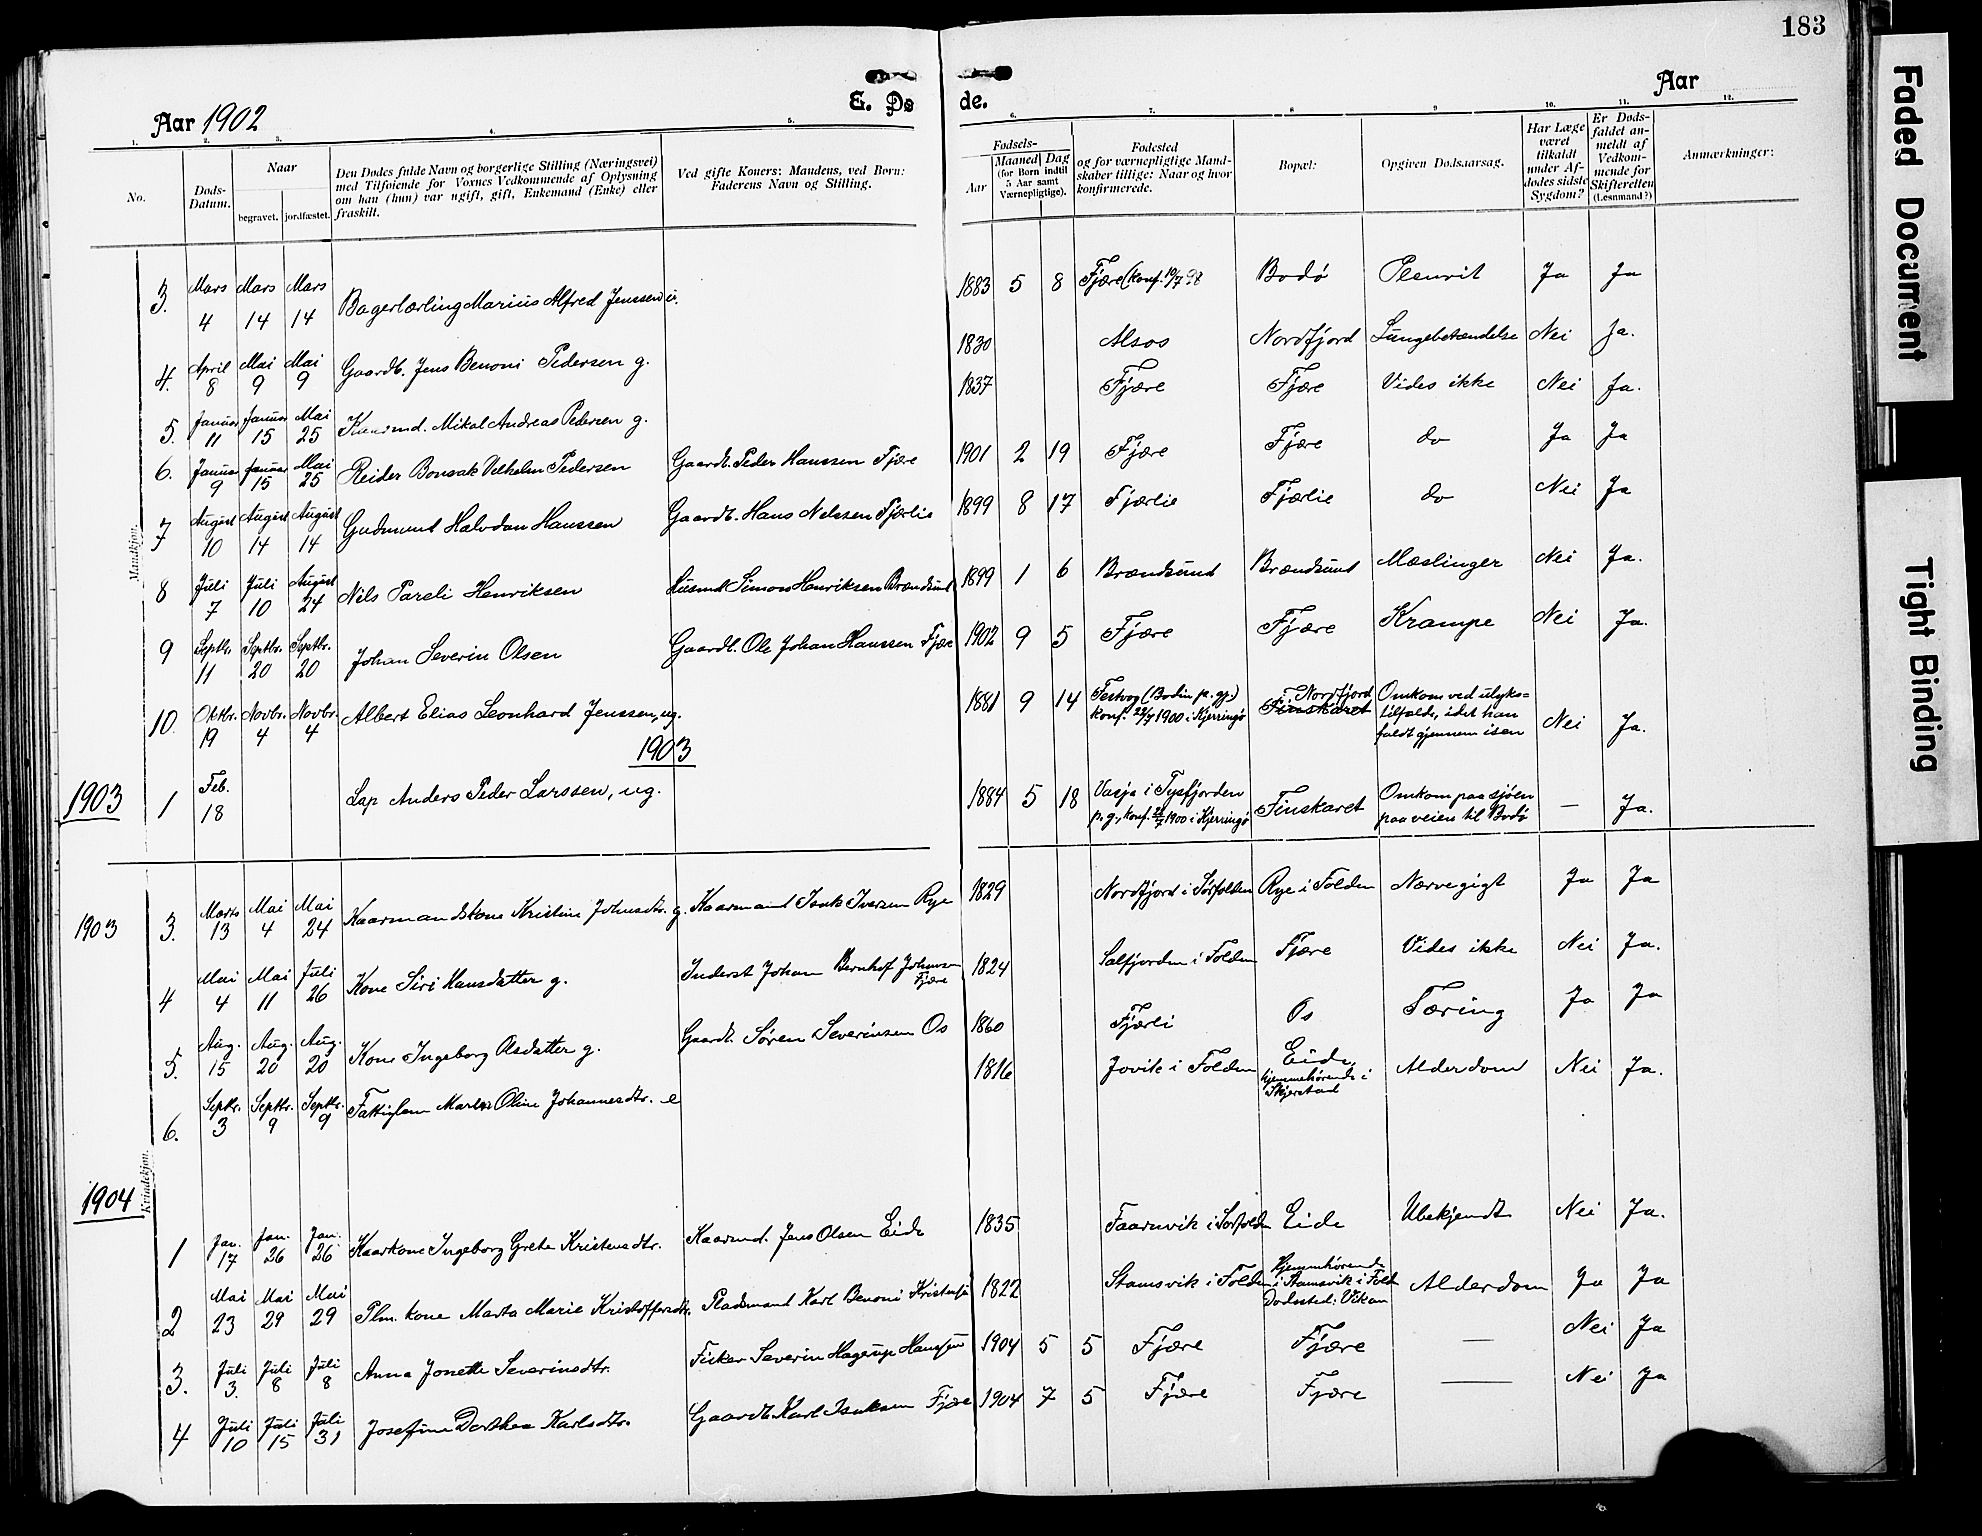 183
Aar 1902
E. Dø
de.
Aar
Faded Document
Tight Binding
1. 2. 3. 4. 5. 6. 7. 8 9 10. 11. 12.
No.
Døds-
Datum.
Naar
begravet. jordfæstet.
Den Dødes fulde Navn og borgerlige Stilling (Næringsvei)
med Tilføiende for Voxnes Vedkommende af Oplysning
om han (hun) var ugift, gift, Enkemand (Enke) eller
fraskilt.
Ved gifte Koners: Mandens, ved Børn:
Faderens Navn og Stilling.
Fødsels-
Aar
Maaned Dag
(for Børn indtil
5 Aar samt
Værnepligtige).
Fødested
og for værnepligtige Mand-
skaber tillige: Naar og hvor
konfirmerede.
Bopæl:
Opgiven Dødsaarsag.
Har Læge
været
tilkaldt
under Af-
dødes sidste
Sygdom?
Er Døds-
faldet an-
meldt af
Vedkom-
mende for
Skifteretten
(Lensmand?)
Anmærkninger:
Mandkjøn.
3. Mars 4 Mars 14 Mars 14 Bagerlærling Marius Alfred Jenssen u. 1883 5 8 Fjære (konf. 10/7 98 Bodø Plevrit Ja Ja
4. April 8 Mai 9 Mai 9 Gaardb. Jens Benoni Pedersen g. 1830 Alsos Nordfjord Lungebetændelse Nei Ja.
5. Januar 11 Januar 15 Mai 25 Kaarmd. Mikal Andreas Pedersen g. 1837 Fjære Fjære Vides ikke Nei Ja.
6. Januar 9 Januar 15 Mai 25 Reider Bonsak Vilhelm Pedersen Gaardb. Peder Hanssen Fjære 1901 2 19 Fjære Fjære do Ja Ja
7 August 10 August 14 August 14 Gudmund Halvdan Hanssen Gaardb. Hans Nelssen Fjærlie 1899 8 17 Fjærlie Fjærlie do Nei Ja
8 Juli 7 Juli 10 August 24 Nils Pareli Henriksen Husmd Simon Henriksen Brændsund 1899 1 6 Brændsund Brændsund Mæslinger Nei Ja.
9 Septbr. 11 Septbr. 20 Septbr. 20 Johan Severin Olsen Gaardb. Ole Johan Hanssen Fjære 1902 9 5 Fjære Fjære Krampe Nei Ja.
10. Oktbr. 19 Novbr. 4 Novbr. 4 Albert Elias Leonhard Jenssen, ug. 1881 9 14 Festvog (Bodin p. gj.) konf. 22/7 1900 i Kjerringø Nordfjord Finskaret Omkom ved ulyks- tilfælde, idet han faldt gjennem isen Nei Ja.
1903
1903 1 Feb. 18 Lap Anders Peder Larssen, ug. 1884 5 18 Vasja i Tysfjorden p.g., konf. 22/7 1900 i Kjerringø Finskaret Omkom paa sjøen paa veien til Bodø — Ja.
Kvindekjøn.
1903 3. Marts 13 Mai 4 Mai 24 Kaarmandskone Kristine Johnsdtr. g. Kaarmand Isak Iversen Rye 1829 Nordfjord i Sørfolden Rye i Folden Nervegigt Ja Ja
4 Mai 4 Mai 11 Juli 26 Kone Siri Hansdatter g. Inderst Johan Bernhof Johnsen Fjære 1824 Salfjorden i Folden Fjære Vides ikke Nei Ja.
5. Aug. 15 Aug. 20 Aug. 20 Kone Ingeborg Olsdatter g. Gaardb. Søren Severinsen Os 1860 Fjærli Os Tæring Ja Ja
6. Septbr. 3 Septbr. 9 Septbr. 9 Fattiglem Oline Johannesdtr. e 1816 Jovik i Folden Eide, hjemmehørende i Skjerstad Alderdom Nei Ja.
1904
1 Jan. 17 Jan. 26 Jan. 26 Kaarkone Ingeborg Grete Kristensdtr. Kaarmd. Jens Olsen Eide 1835 Faarvik i Sørfolden Eide Ubekjendt Nei Ja.
2 Mai 23 Mai 29 Mai 29 Plm. kone Marta Marie Kristoffersdtr. Pladsmand Karl Benoni 1822 Stamsvik i Folden hjemmehørende i Stamsvik i Fold Dødssted: Vikan Alderdom Ja Ja
3. Juli 3. Juli 8 Juli 8 Anna Jonette Severinsdtr. Fisker Severin Hagerup Hanssen 1904 5 5 Fjære Fjære — Nei Ja
4 Juli 10 Juli 15 Juli 31 Josefine Dorthea Karlsdtr. Gaardb. Karl Isaksen Fjære 1904 7 5 Fjære Fjære — Nei Ja